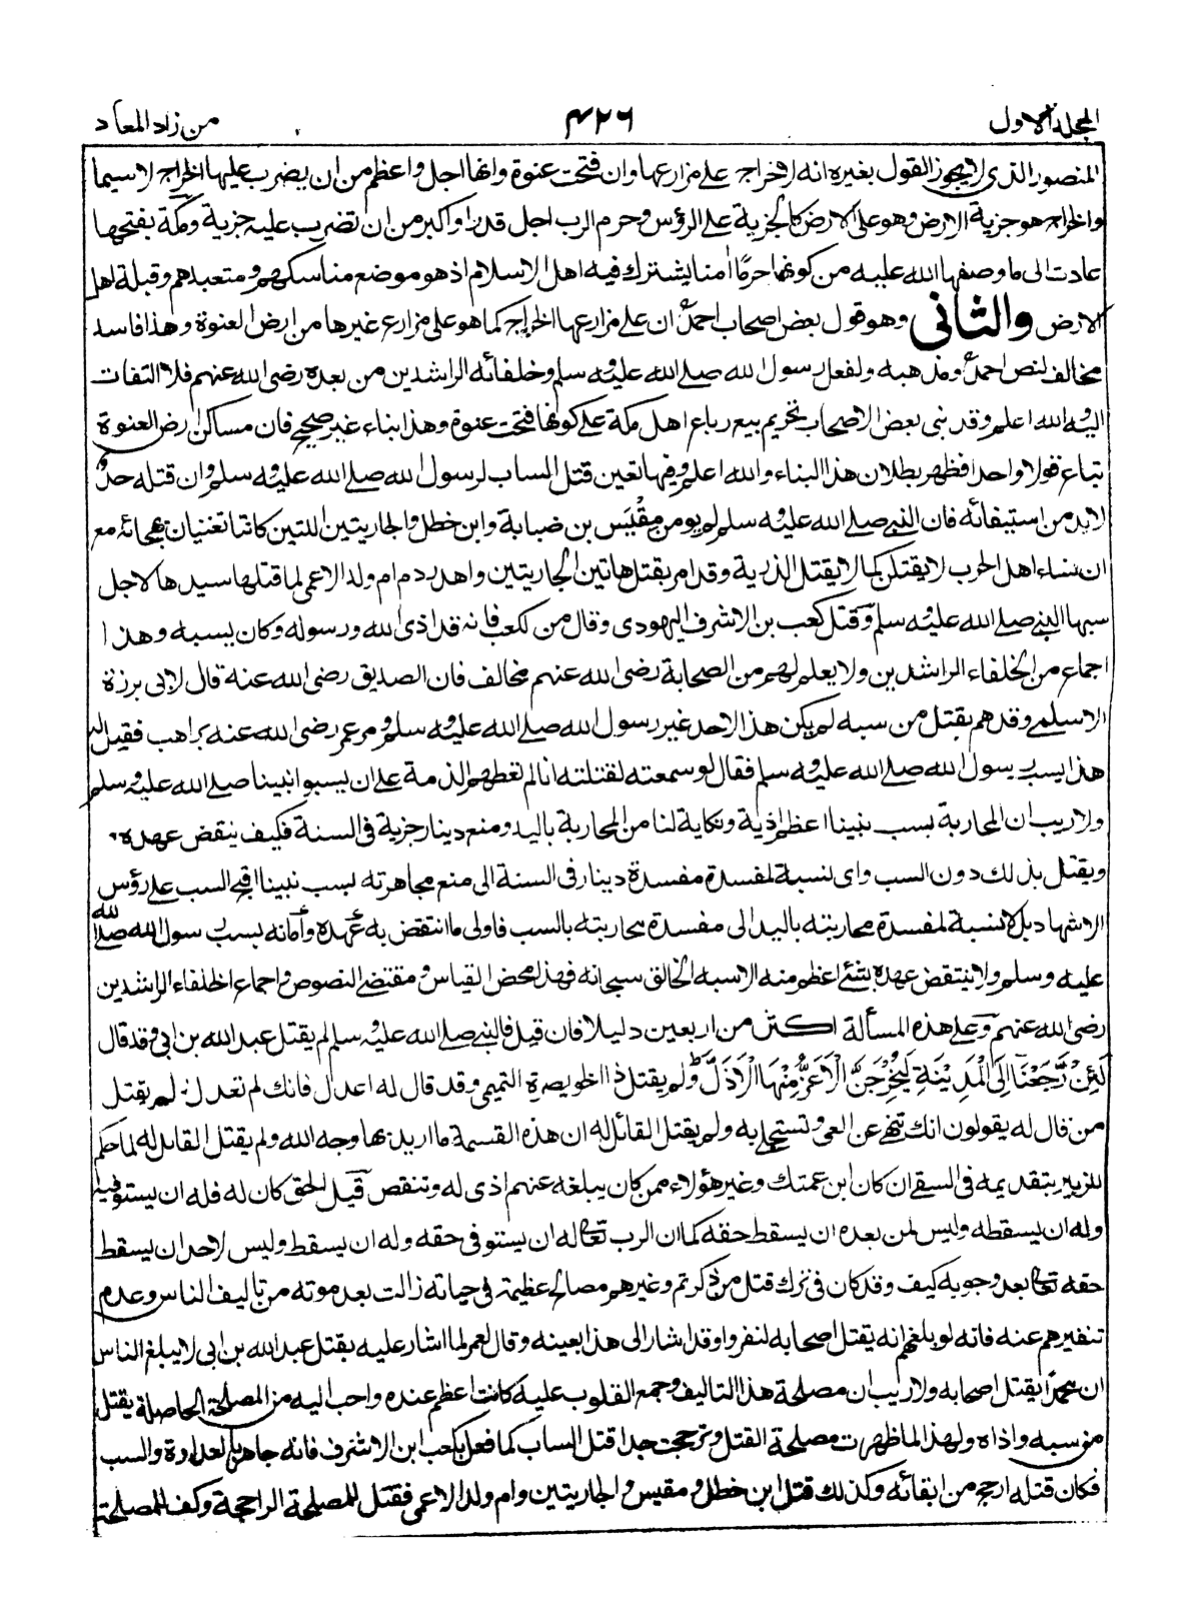 المجلد الاول
٤٢٦
من زاد المعاد
المنصور الذى لا يجوز القول بغيره انه لا خراج على مزارعها وان فتحت عنوة وانها اجل واعظم من ان يضرب عليها الخراج لاسيما
والخراج هو جزية الارض وهو على الارض كالجزية على الرؤس وحرم الرب اجل قدرا واكبر من ان تضرب عليه جزية ومكة بفتحها
عادت الى ما وصفها الله عليه من كونها حرمًا اٰمنا يشترك فيه اهل الاسلام اذ هو موضع مناسكهم ومتعبدهم وقبلة اهل
الارض والثانى وهو قول بعض اصحاب احمد ان على مزارعها الخراج كما هو على مزارع غيرها من ارض العنوة وهذا فاسد
مخالف لنص احمد ومذهبه ولفعل رسول الله صلى الله عليه وسلم وخلفائه الراشدين من بعده رضى الله عنهم فلا التفات
اليه والله اعلم وقد بنى بعض الاصحاب تحريم بيع رباع اهل مكة على كونها فتحت عنوة وهذا بناء غير صحيح فان مساكن ارض العنوة
تباع قولا واحدا فظهر بطلان هذا البناء والله اعلم وفيها تعين قتل الساب لرسول الله صلى الله عليه وسلم وان قتله حد
لا بد من استيفائه فان النبى صلى الله عليه وسلم لم يومن مِقْيَس بن ضبابة وابن خطل والجاريتين اللتين كانتا تغنيان بهجائه مع
ان نساء اهل الحرب لا يقتلن كما لا يقتل الذرية وقد امر بقتل هاتين الجاريتين واهدر دم ام ولد الاعمى لما قتلها سيدها لاجل
سبها النبى صلى الله عليه وسلم وقتل كعب بن الاشرف اليهودى وقال من لكعب فانه قد اذى الله ورسوله وكان يسبه وهذا
اجماع من الخلفاء الراشدين ولا يعلم لهم من الصحابة رضى الله عنهم مخالف فان الصديق رضى الله عنه قال لابى برزة
الاسلمى وقد هم بقتل من سبه لم يكن هذا لاحد غير رسول الله صلى الله عليه وسلم ومر عمر رضى الله عنه براهب فقيل له
هذا يسب رسول الله صلى الله عليه وسلم فقال لو سمعته لقتلته انا لم نعطهم الذمة على ان يسبوا نبينا صلى الله عليه وسلم
ولا ريب ان المحاربة بسب نبينا اعظم اذية ونكاية لنا من المحاربة باليد ومنع دينار جزية فى السنة فكيف ينقض عهده
ويقتل بذلك دون السب واى نسبة لمفسدة مفسدة دينار فى السنة الى منع مجاهرته بسب نبينا اقبح السب على رؤس
الاشهاد بل لا نسبة لمفسدة محاربته باليد الى مفسدة محاربته بالسب فاولى ما انتقض به عهده وأمانه بسب رسول الله صلى الله
عليه وسلم ولا ينتقض عهده بشئ اعظم منه الا سبه الخالق سبحانه فهذا محض القياس ومقتضى النصوص واجماع الخلفاء الراشدين
رضى الله عنهم وعلى هذه المسألة اكثر من اربعين دليلا فان قيل فالنبى صلى الله عليه وسلم لم يقتل عبد الله بن ابى وقد قال
لَئِنْ رَّجَعْنَآ اِلَى الْمَدِيْنَةِ لَيُخْرِجَنَّ الْاَعَزُّ مِنْهَا الْاَذَلَّ ولم يقتل ذا الخويصرة التميمى وقد قال له اعدل فانك لم تعدل ولم يقتل
من قال له يقولون انك تنهى عن الغى وتستحلى به ولم يقتل القائل له ان هذه القسمة ما اريد بها وجه الله ولم يقتل القائل له لما حكم
للزبير بتقديمه فى السقى ان كان ابن عمتك وغير هؤلاء ممن كان يبلغه عنهم اذى له وتنقص قيل الحق كان له فله ان يستوفيه
وله ان يسقطه وليس لمن بعده ان يسقط حقه كما ان الرب تعالى له ان يستوفى حقه وله ان يسقط وليس لاحد ان يسقط
حقه تعالى بعد وجوبه كيف وقد كان فى ترك قتل من ذكرتم وغيرهم مصالح عظيمة فى حياته زالت بعد موته من تاليف الناس وعدم
تنفيرهم عنه فانه لو بلغهم انه يقتل اصحابه لنفروا وقد اشار الى هذا بعينه وقال لعمر لما اشار عليه بقتل عبد الله بن ابى لا يبلغ الناس
ان محمدًا يقتل اصحابه ولا ريب ان مصلحة هذا التاليف وجمع القلوب عليه كانت اعظم عنده واحب اليه من المصلحة الحاصلة بقتل
من سبه واذاه ولهذا لما ظهرت مصلحة القتل وترجحت جدا قتل الساب كما فعل بكعب ابن الاشرف فانه جاهر بالعداوة والسب
فكان قتله ارجح من ابقائه وكذلك قتل ابن خطل ومقيس والجاريتين وام ولد الاعمى فقتل للمصلحة الراجحة وكف للمصلحة